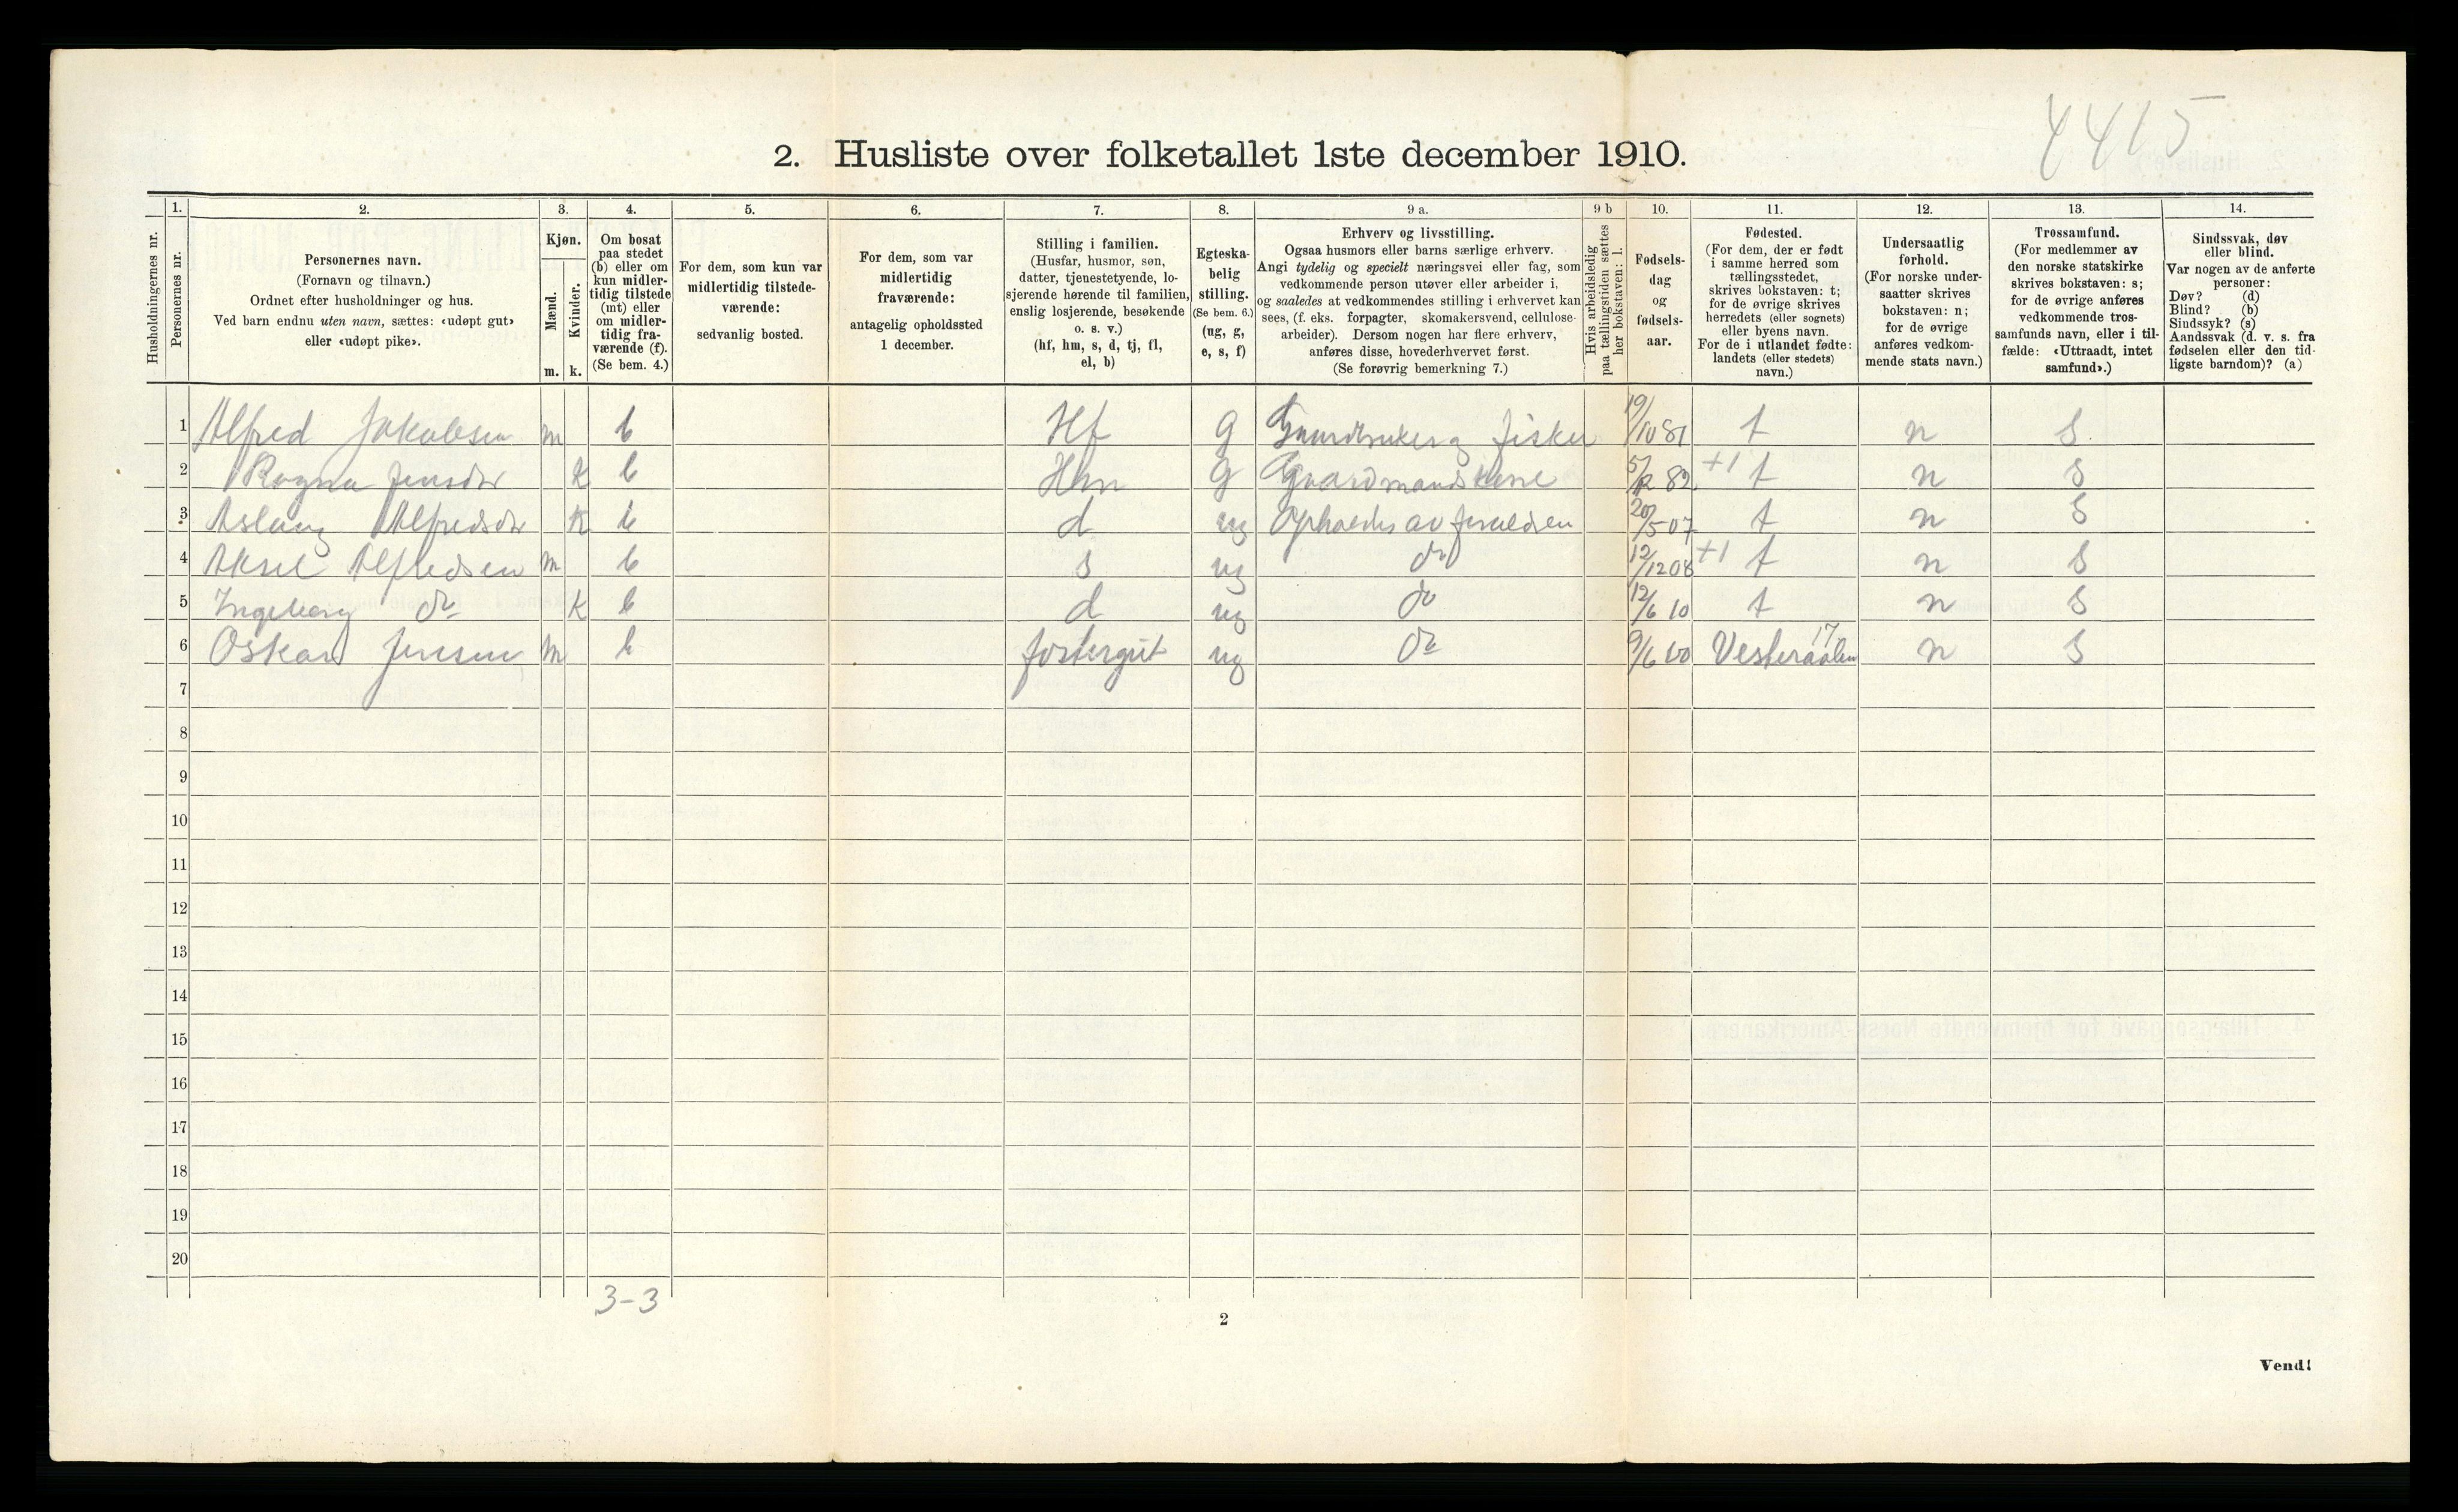 4415
2. Husliste over folketallet 1ste december 1910.
Husholdningernes nr.
1.
Personernes nr.
2.
Personernes navn.
(Fornavn og tilnavn.)
Ordnet efter husholdninger og hus.
Ved barn endnu uten navn, sættes: «udøpt gut»
eller «udøpt pike».
3.
Kjøn.
Mænd.
Kvinder.
m. k.
4.
Om bosat
paa stedet
(b) eller om
kun midler-
tidig tilstede
(mt) eller
om midler-
tidig fra-
værende (f).
(Se bem. 4.)
5.
For dem, som kun var
midlertidig tilstede-
værende:
sedvanlig bosted.
6.
For dem, som var
midlertidig
fraværende:
antagelig opholdssted
1 december.
7.
Stilling i familien.
(Husfar, husmor, søn,
datter, tjenestetyende, lo-
sjerende hørende til familien,
enslig losjerende, besøkende
o. s. v.)
(hf, hm, s, d, tj, fl,
el, b)
8.
Egteska-
belig
stilling.
(Se bem. 6.)
(ug, g,
e, s, f)
9 a.
Erhverv og livsstilling.
Ogsaa husmors eller barns særlige erhverv.
Angi tydelig og specielt næringsvei eller fag, som
vedkommende person utøver eller arbeider i,
og saaledes at vedkommendes stilling i erhvervet kan
sees, (f. eks. forpagter, skomakersvend, cellulose-
arbeider). Dersom nogen har flere erhverv,
anføres disse, hovederhvervet først.
(Se forøvrig bemerkning 7.)
9 b
Hvis arbeidsledig
paa tællingstiden sættes
her bokstaven: l.
10.
Fødsels-
dag
og
fødsels-
aar.
11.
Fødested.
(For dem, der er født
i samme herred som
tællingsstedet,
skrives bokstaven: t;
for de øvrige skrives
herredets (eller sognets)
eller byens navn.
For de i utlandet fødte:
landets (eller stedets)
navn.)
12.
Undersaatlig
forhold.
(For norske under-
saatter skrives
bokstaven: n;
for de øvrige
anføres vedkom-
mende stats navn.)
13.
Trossamfund.
(For medlemmer av
den norske statskirke
skrives bokstaven: s;
for de øvrige anføres
vedkommende tros-
samfunds navn, eller i til-
fælde: «Uttraadt, intet
samfund».)
14.
Sindssvak, døv
eller blind.
Var nogen av de anførte
personer:
Døv? (d)
Blind? (b)
Sindssyk? (s)
Aandssvak (d. v. s. fra
fødselen eller den tid-
ligste barndom)? (a)
1 Alfred Jakobsen m b Hf g Gaardbruker og fisker 19/10 81 t n S
2 Ragna Jensdr K b Hm g Gaardmandskone 5/12 82 +1 t n S
3 Aslaug Alfredsdr K b d ug Opholdes av foreldren 20/5 07 t n S
4 Aksel Alfredsen m b s ug do 12/12 08 +1 t n S
5 Ingeborg do K b d ug do 12/6 10 t n S
6 Oskar Jensen m b fostergut ug do 9/6 00 Vesteraalen 17 n S
7
8
9
10
11
12
13
14
15
16
17
18
19
20
3-3
2
Vend!